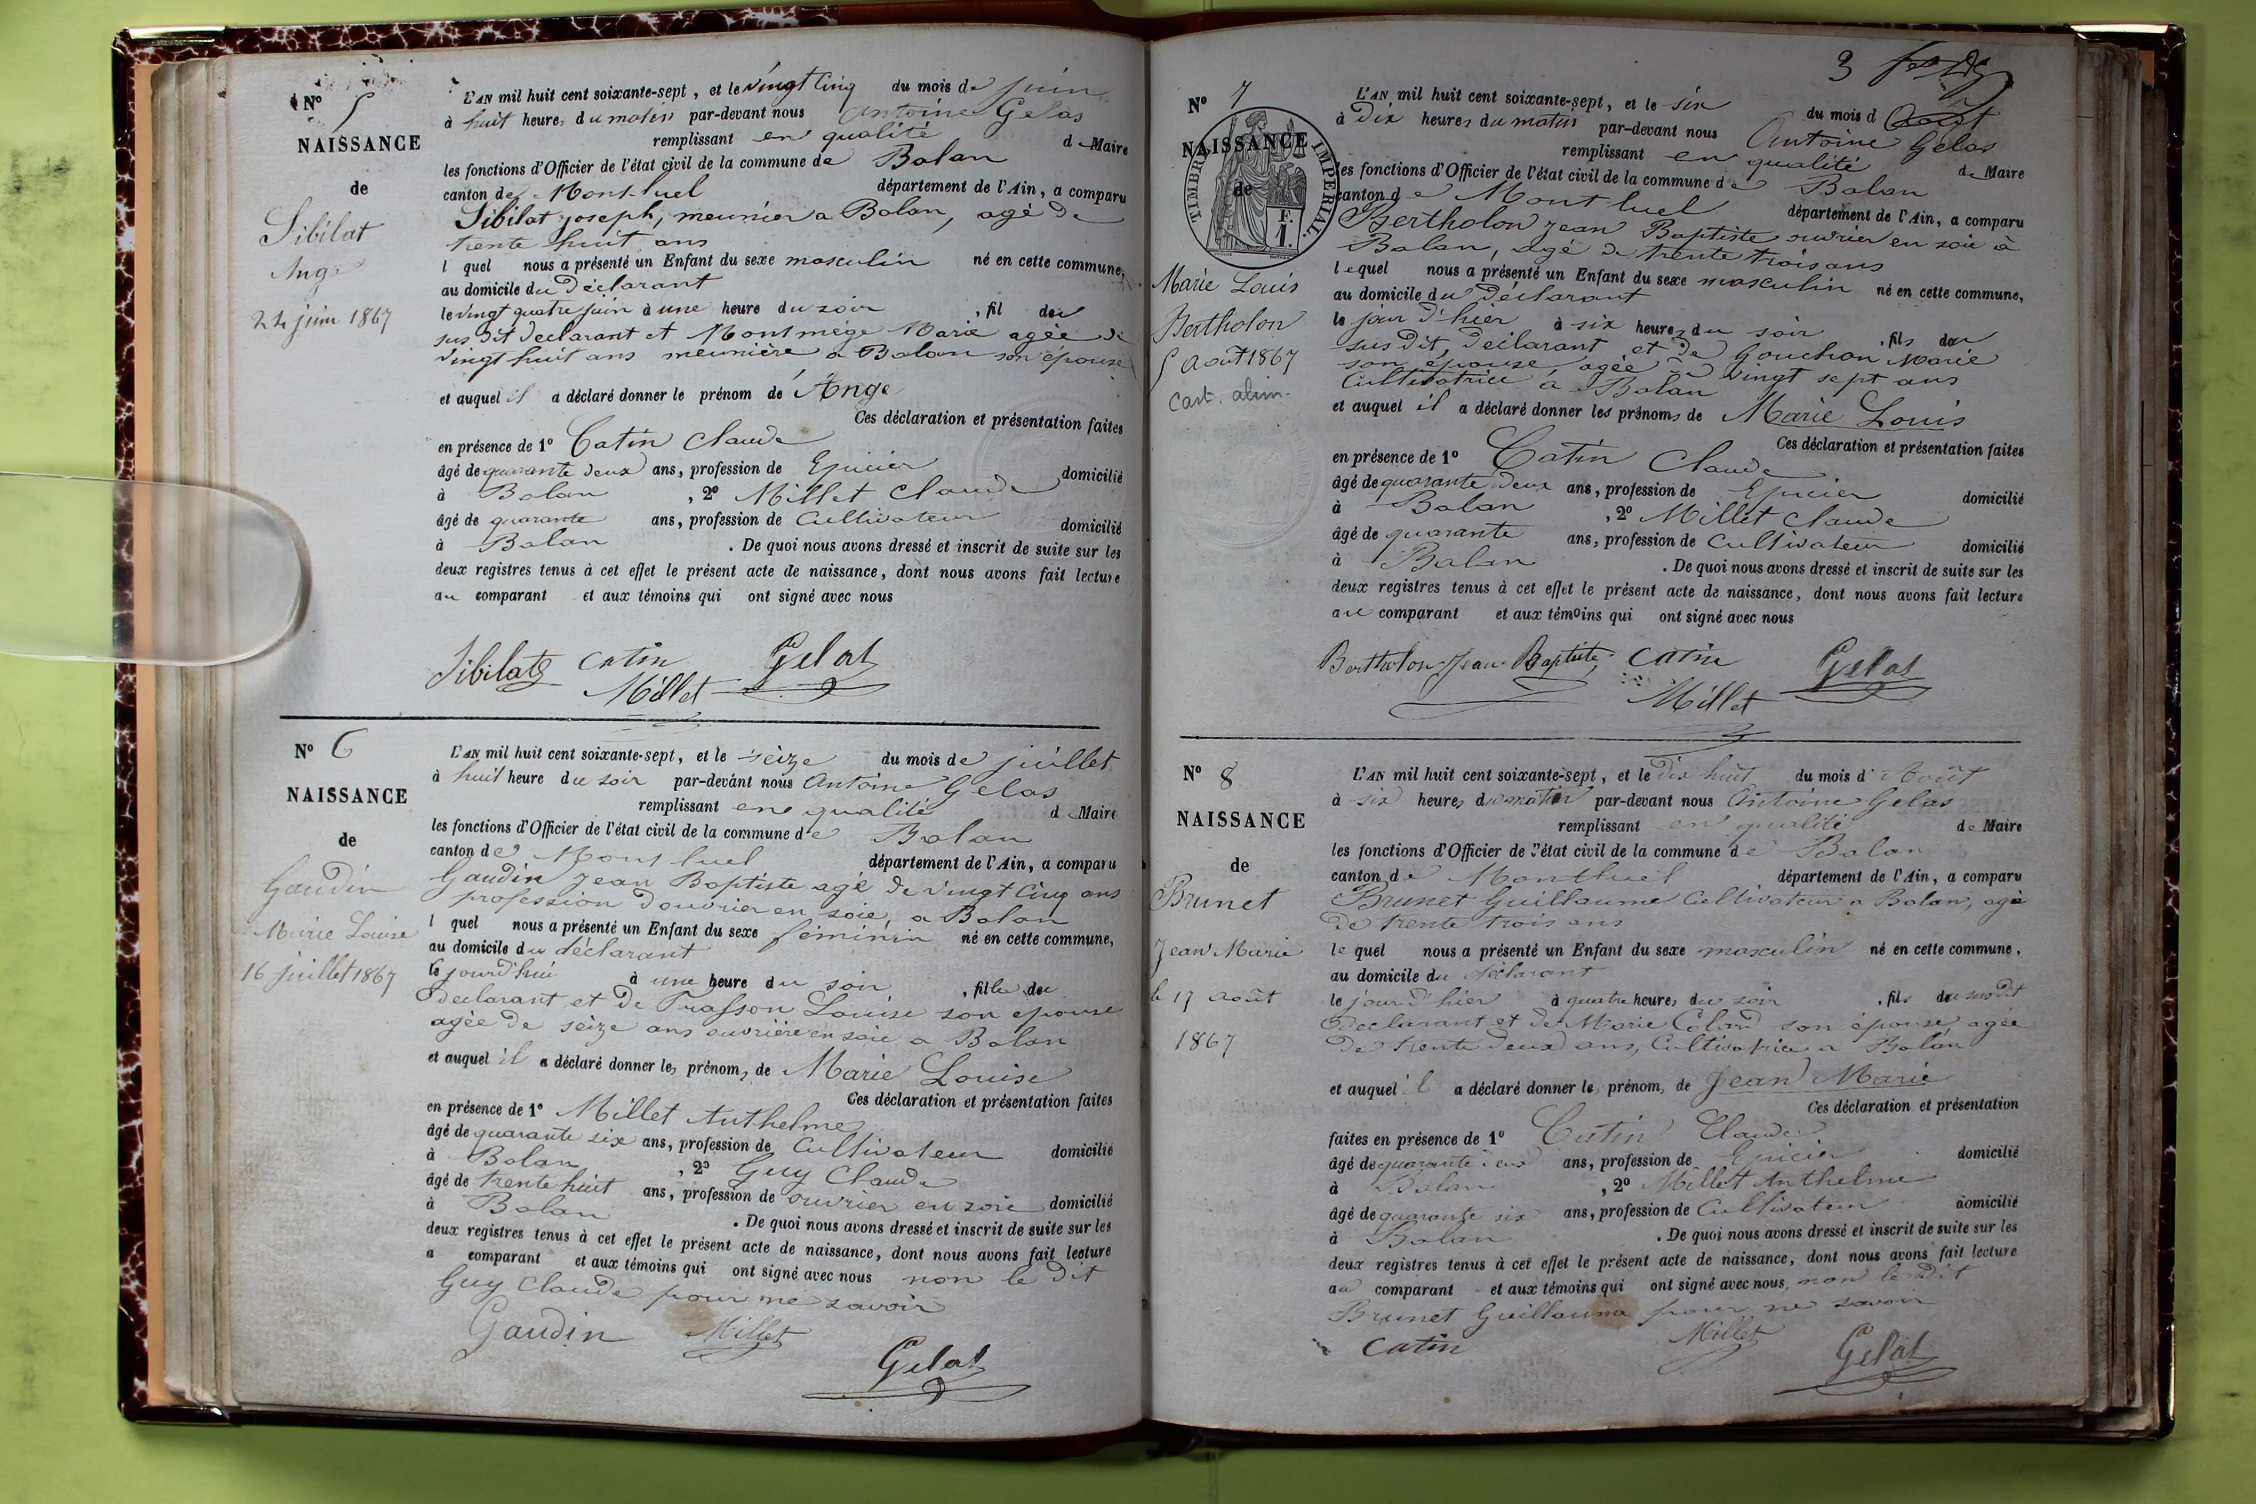 N° 5
NAISSANCE
de
Sibilat
Ange
24 juin 1867
L'AN mil huit cent soixante-sept, et le vingt cinq du mois de juin
à huit heures du matin par-devant nous Antoine Gelas
remplissant en qualité de Maire
les fonctions d'Officier de l'état civil de la commune de Balan
canton de Montluel département de l'Ain, a comparu
Sibilat joseph, meunier a Balan, agé de
trente huit ans
l quel nous a présenté un Enfant du sexe masculin né en cette commune,
au domicile du Déclarant
le vingt quatre juin à une heure du soir, fil du
sus dit declarant et Montmége Marie agée de
vingt huit ans meunière a Balan son épouse
et auquel il a déclaré donner le prénom de Ange
Ces déclaration et présentation faites
en présence de 1° Catin Claude
âgé de quarante deux ans, profession de Epicier domicilié
à Balan, 2° Millet Claude
âgé de quarante ans, profession de Cultivateur domicilié
à Balan. De quoi nous avons dressé et inscrit de suite sur les
deux registres tenus à cet effet le présent acte de naissance, dont nous avons fait lecture
au comparant et aux témoins qui ont signé avec nous
Sibilat Catin Gelas
Millet
N° 6
NAISSANCE
de
Gaudin
Marie Louise
16 juillet 1867
L'AN mil huit cent soixante-sept, et le seize du mois de juillet
à huit heure du soir par-devant nous Antoine Gelas
remplissant en qualité de Maire
les fonctions d'Officier de l'état civil de la commune de Balan
canton de Montluel département de l'Ain, a comparu
Gaudin Jean Baptiste agé de vingt cinq ans
profession d'ouvrier en soie, a Balan
l quel nous a présenté un Enfant du sexe féminin né en cette commune,
au domicile du déclarant
le jourd'hui à une heure du soir, fille du
declarant et de Louise son epouse
agée de seize ans ouvrière en soie a Balan
et auquel il a déclaré donner les prénoms de Marie Louise
Ces déclaration et présentation faites
en présence de 1° Millet Anthelme
âgé de quarante six ans, profession de Cultivateur domicilié
à Balan, 2° Guy Claude
âgé de trente huit ans, profession de ouvrier en soie domicilié
à Balan. De quoi nous avons dressé et inscrit de suite sur les
deux registres tenus à cet effet le présent acte de naissance, dont nous avons fait lecture
a comparant et aux témoins qui ont signé avec nous non le dit
Guy Claude pour ne savoir
Gaudin Millet
Gelas
3
N° 7
NAISSANCE
de
TIMBRE IMPERIAL.
F. 1.
Marie Louis
Bertholon
5 Août 1867
L'AN mil huit cent soixante-sept, et le six du mois d Août
à Dix heures du matin par-devant nous Antoine Gelas
remplissant en qualité de Maire
les fonctions d'Officier de l'état civil de la commune de Balan
canton de Montluel département de l'Ain, a comparu
Bertholon Jean Baptiste ouvrier en soie à
Balan, agé de trente trois ans
lequel nous a présenté un Enfant du sexe masculin né en cette commune,
au domicile du Déclarant
le jour d'hier à six heures du soir, fils du
susdit déclarant et de Gouchon Marie
son épouse agée de vingt sept ans
Cultivatrice à Balan
et auquel il a déclaré donner les prénoms de Marie Louis
Ces déclaration et présentation faites
en présence de 1° Catin Claude
âgé de quarante deux ans, profession de Epicier domicilié
à Balan, 2° Millet Claude
âgé de quarante ans, profession de Cultivateur domicilié
à Balan. De quoi nous avons dressé et inscrit de suite sur les
deux registres tenus à cet effet le présent acte de naissance, dont nous avons fait lecture
au comparant et aux témoins qui ont signé avec nous
Bertholon Jean Baptiste Catin Gelas
Millet
N° 8
NAISSANCE
de
Brunet
Jean Marie
le 17 Août
1867
L'AN mil huit cent soixante-sept, et le dix huit du mois d'Août
à six heures du matin par-devant nous Antoine Gelas
remplissant en qualité de Maire
les fonctions d'Officier de l'état civil de la commune de Balan
canton de Montluel département de l'Ain, a comparu
Brunet Guillaume Cultivateur a Balan, agé
de trente trois ans
le quel nous a présenté un Enfant du sexe masculin né en cette commune,
au domicile du déclarant
le jour d'hier à quatre heures du soir, fils du susdit
declarant et de Marie Coland son épouse agée
de trente deux ans, Cultivatrice a Balan
et auquel il a déclaré donner les prénoms de Jean Marie
Ces déclaration et présentation
faites en présence de 1° Catin Claude
âgé de quarante deux ans, profession de Epicier domicilié
à Balan, 2° Millet Anthelme
âgé de quarante six ans, profession de Cultivateur domicilié
à Balan. De quoi nous avons dressé et inscrit de suite sur les
deux registres tenus à cet effet le présent acte de naissance, dont nous avons fait lecture
au comparant et aux témoins qui ont signé avec nous, non le dit
Brunet Guillaume pour ne savoir
Catin Millet Gelas